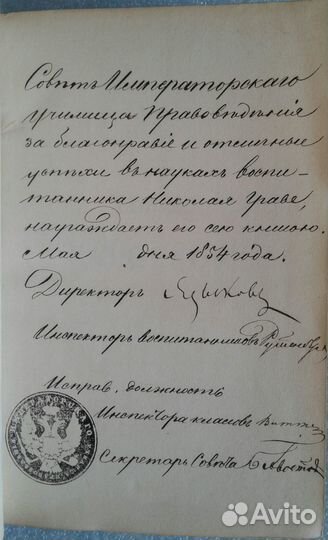 Советъ Императорскаго
училища Правовѣдѣнія
за благонравіе и отличные
успѣхи въ наукахъ воспи-
танника Николая Граве,
награждаетъ его сею книгою.
Мая дня 1854 года.
Директоръ Языковъ
Инспекторъ воспитанниковъ
Исправ. должность
Инспектора классовъ Витте
Секретарь Совѣта
Avito